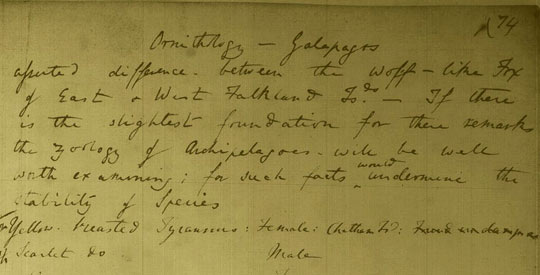 74
Ornithology — Galapagos
asserted difference — between the wolf-like Fox
of East & West Falkland Isds. — If there
is the slightest foundation for these remarks
the zoology of Archipelagoes — will be well
worth examining; for such facts would undermine the
stability of Species
Yellow breasted Tyrannus: Female: Chatham Isd:
Scarlet do Male